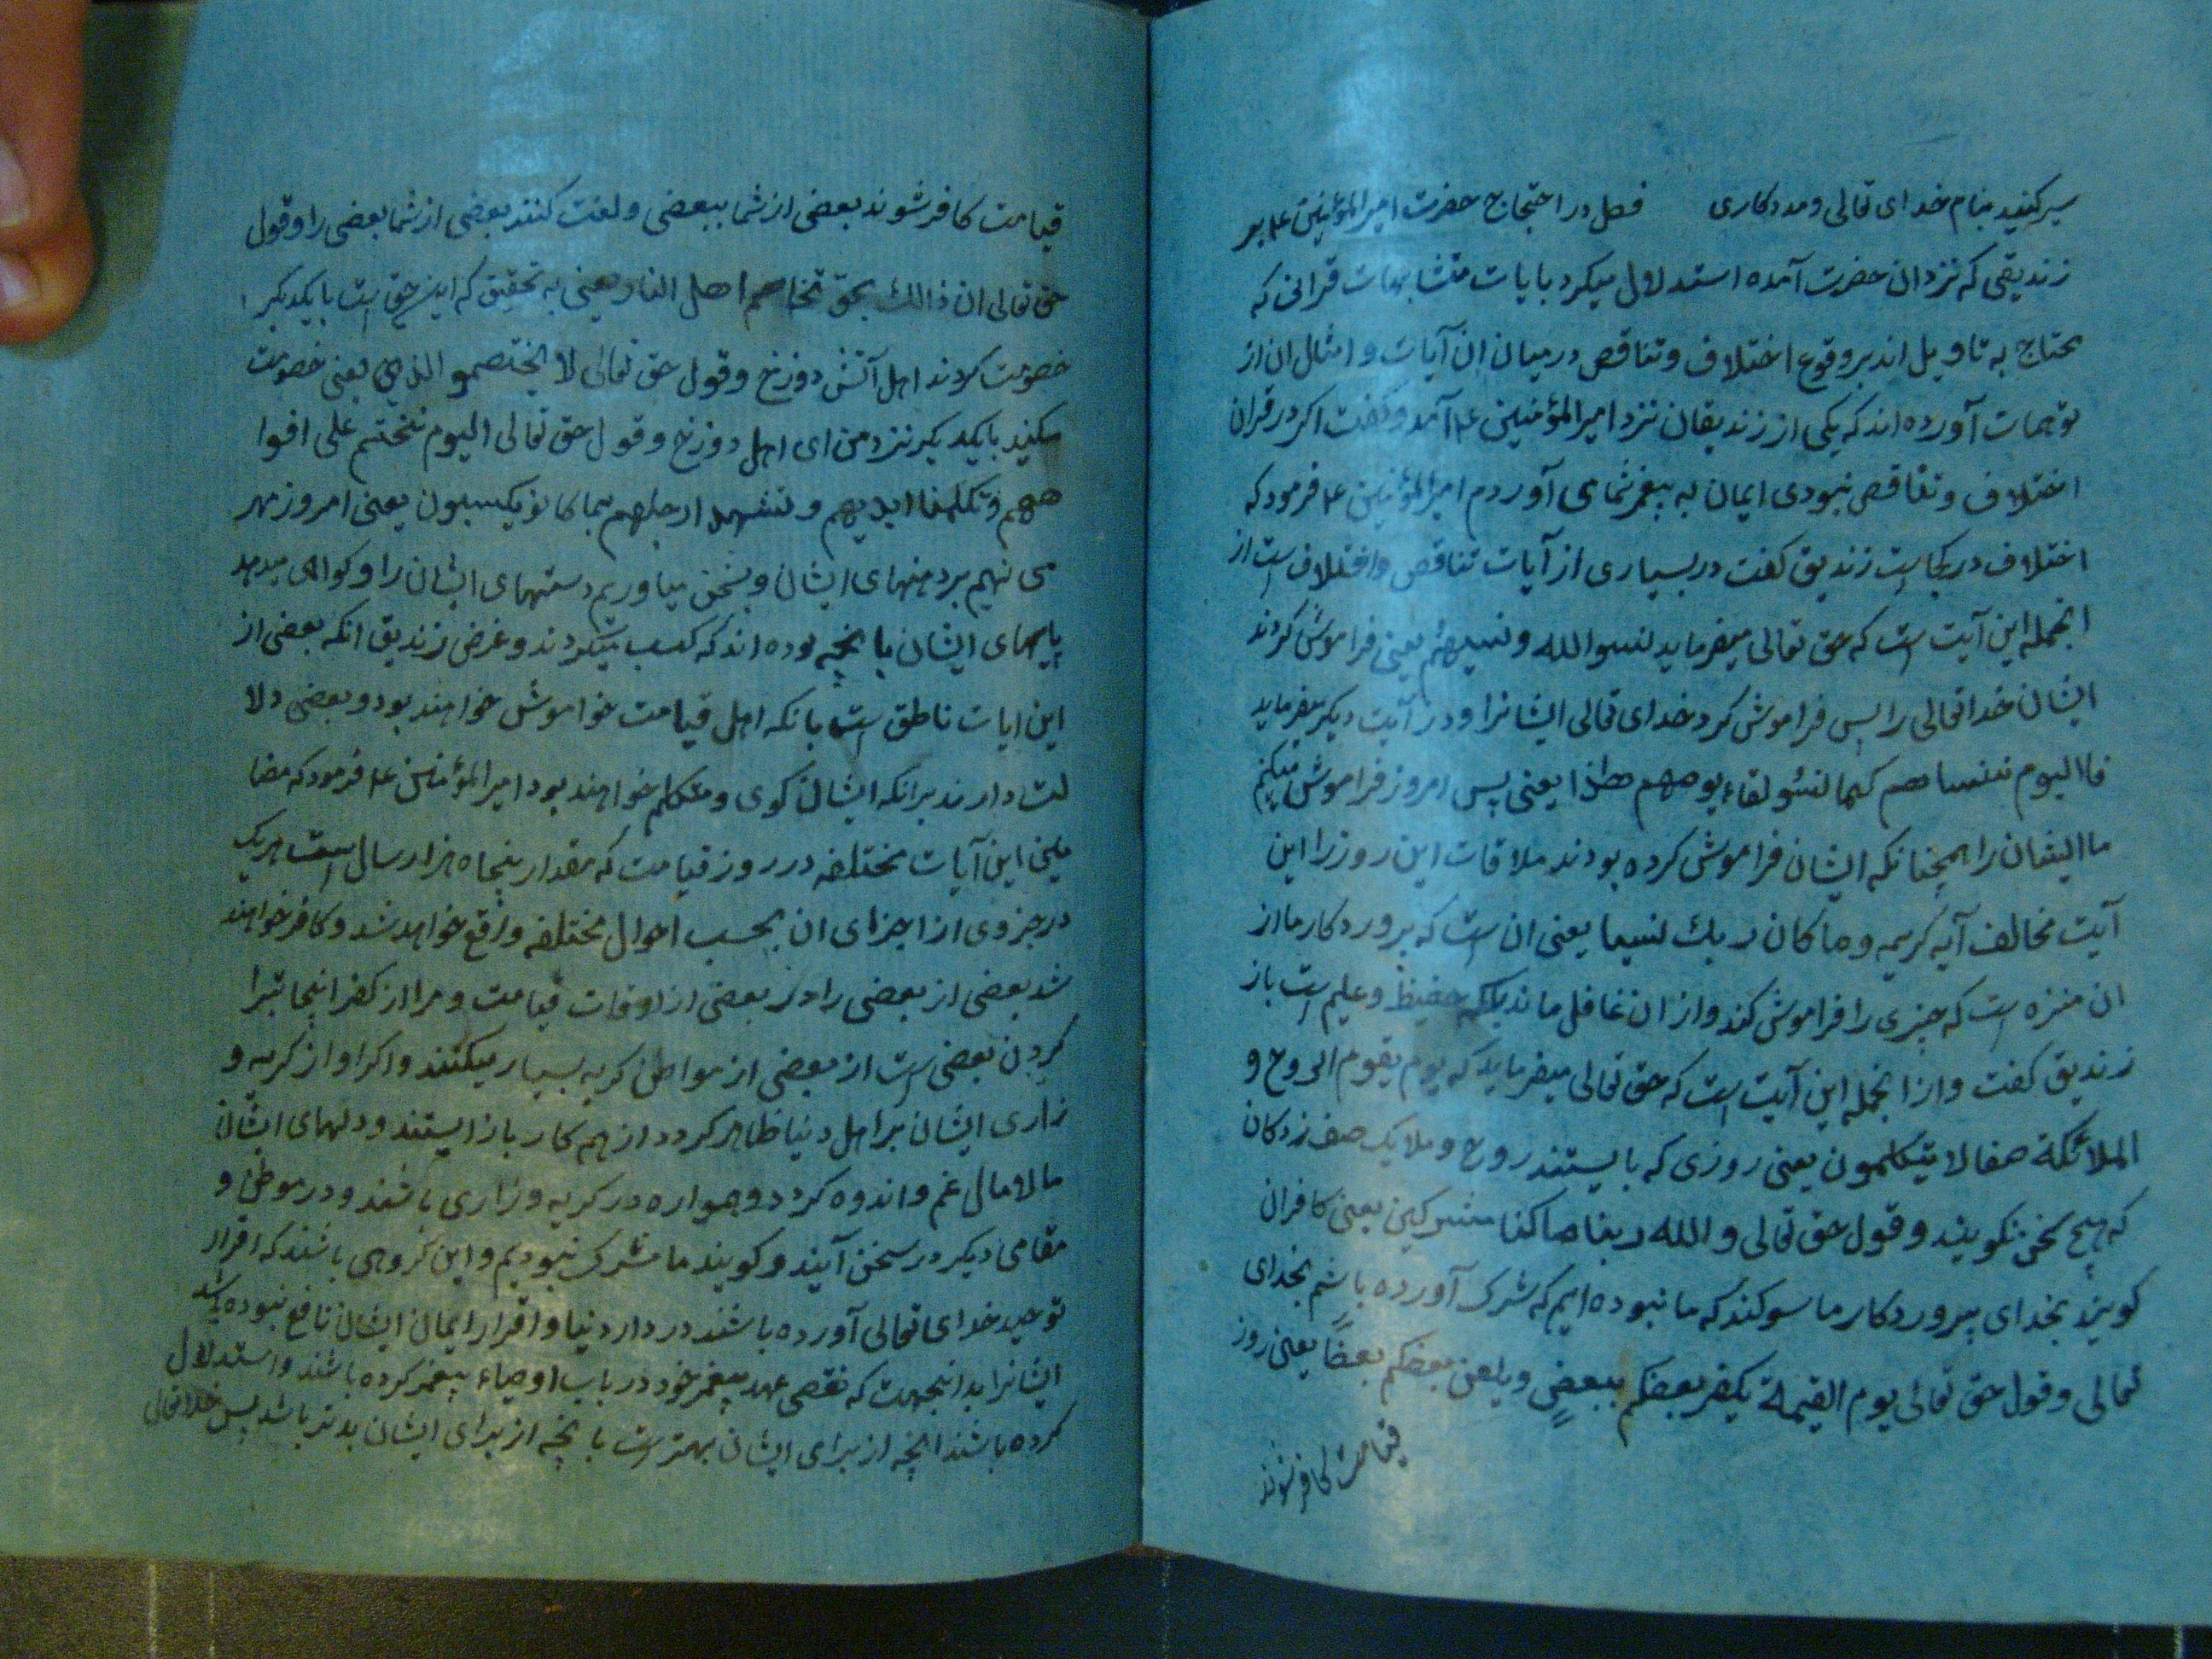 سیر کنید بنام خدای تعالی و مددکاری فصل در احتجاج حضرت امیرالمؤمنین ع بر
زندیقی که نزد ان حضرت آمده استدلال میکرد بایات متشابهات قرانی که
محتاج به تاویل اند بر وقوع اختلاف و تناقص در میان ان آیات و امثال ان از
توهمات آورده اند که یکی از زندیقان نزد امیرالمؤمنین ع آمد و کفت اکر در قران
اختلاف و تناقص نبودی ایمان به پیغمبر شمای آوردم امیرالمؤمنین ع فرمود که
اختلاف در کجاست زندیق کفت در بسیاری از آیات تناقص و اختلاف است از
انجمله این آیت است که حق تعالی میفرماید نسوا الله و نسیهم یعنی فراموش کردند
ایشان خداتعالی را پس فراموش کرد خدای تعالی ایشانرا و در آیت دیکر میفرماید
فاالیوم ننساهم کما نسو لقاء یومهم هذا یعنی پس امروز فراموش میکنم
ما ایشان را همچنانکه ایشان فراموش کرده بودند ملاقات این روز را این
آیت مخالف آیه کریمه و ما کان ربك نسیا یعنی ان است که پروردکار ما از
ان منزه است که چیزی را فراموش کند و از ان غافل ماند بلکه حفیظ و علیم است باز
زندیق کفت و ازانجمله این آیت است که حق تعالی میفرماید که یوم یقوم الروح و
الملائکة صفا لا یتکلمون یعنی روزی که بایستند روح و ملایک صف زدکان
که هیچ سخن نکویند و قول حق تعالی و الله ربنا ما کنا مشرکین یعنی کافران
کویند بخدای پروردکار ما سوکند که ما نبوده ایم که شرک آورده باشم بخدای
تعالی و قول حق تعالی یوم القیمة یکفر بعضکم ببعضٍ و یلعن بعضکم بعضًا یعنی روز
قیامت کافر شوند
قیامت کافر شوند بعضی از شما ببعضی و لعنت کنند بعضی از شما بعضی را و قول
حق تعالی ان ذالك لحق تخاصم اهل النار یعنی به تحقیق که این حق است با یکدیکر
خصومت کردند اهل آتش دوزخ و قول حق تعالی لا تختصموا لدی یعنی خصومت
مکنید با یکدیکر نزد من ای اهل دوزخ و قول حق تعالی الیوم نختم علی افوا
ههم و تکلمنا ایدیهم و تشهد ارجلهم بما کانو یکسبون یعنی امروز مهر
می نهیم بر دهنهای ایشان و بسخن میاوریم دستهای ایشان را و کواهی میدهد
پایهای ایشان بانچه بوده اند که کسب میکردند و غرض زندیق انکه بعضی از
این ایات ناطق است بانکه اهل قیامت خواموش خواهند بود و بعضی دلا
لت دارند برانکه ایشان کوی و متکلم خواهند بود امیرالمؤمنین ع فرمود که مضا
مین این آیات مختلفه در روز قیامت که مقدار پنجاه هزار سال است هر یک
در جزوی از اجزای ان بحسب احوال مختلفه واقع خواهد شد و کافر خواهند
شد بعضی از بعضی را در بعضی از اوقات قیامت و مراد از کفر اینجا تبرا
کردن بعضی است از بعضی از مواطن کریه بسیار میکنند و اکر اواز کریه و
زاری ایشان بر اهل دنیا ظاهر کردد از هم کار باز ایستند و دلهای ایشان
مالامال غم و اندوه کردد و همواره در کریه و زاری باشند و در موطن و
مقامی دیکر در سخن آیند و کویند ما مشرک نبودیم و این کروهی باشند که اقرار
توحید خدای تعالی آورده باشند در دار دنیا و اقرار ایمان ایشان نافع نبوده باشد
ایشانرا بدانجهت که نقص عهد پیغمبر خود در باب اوصیاء پیغمبر کرده باشند و استدلال
کرده باشند انچه از برای ایشان بهتر است بانچه از برای ایشان بدتر باشد پس خداتعالی